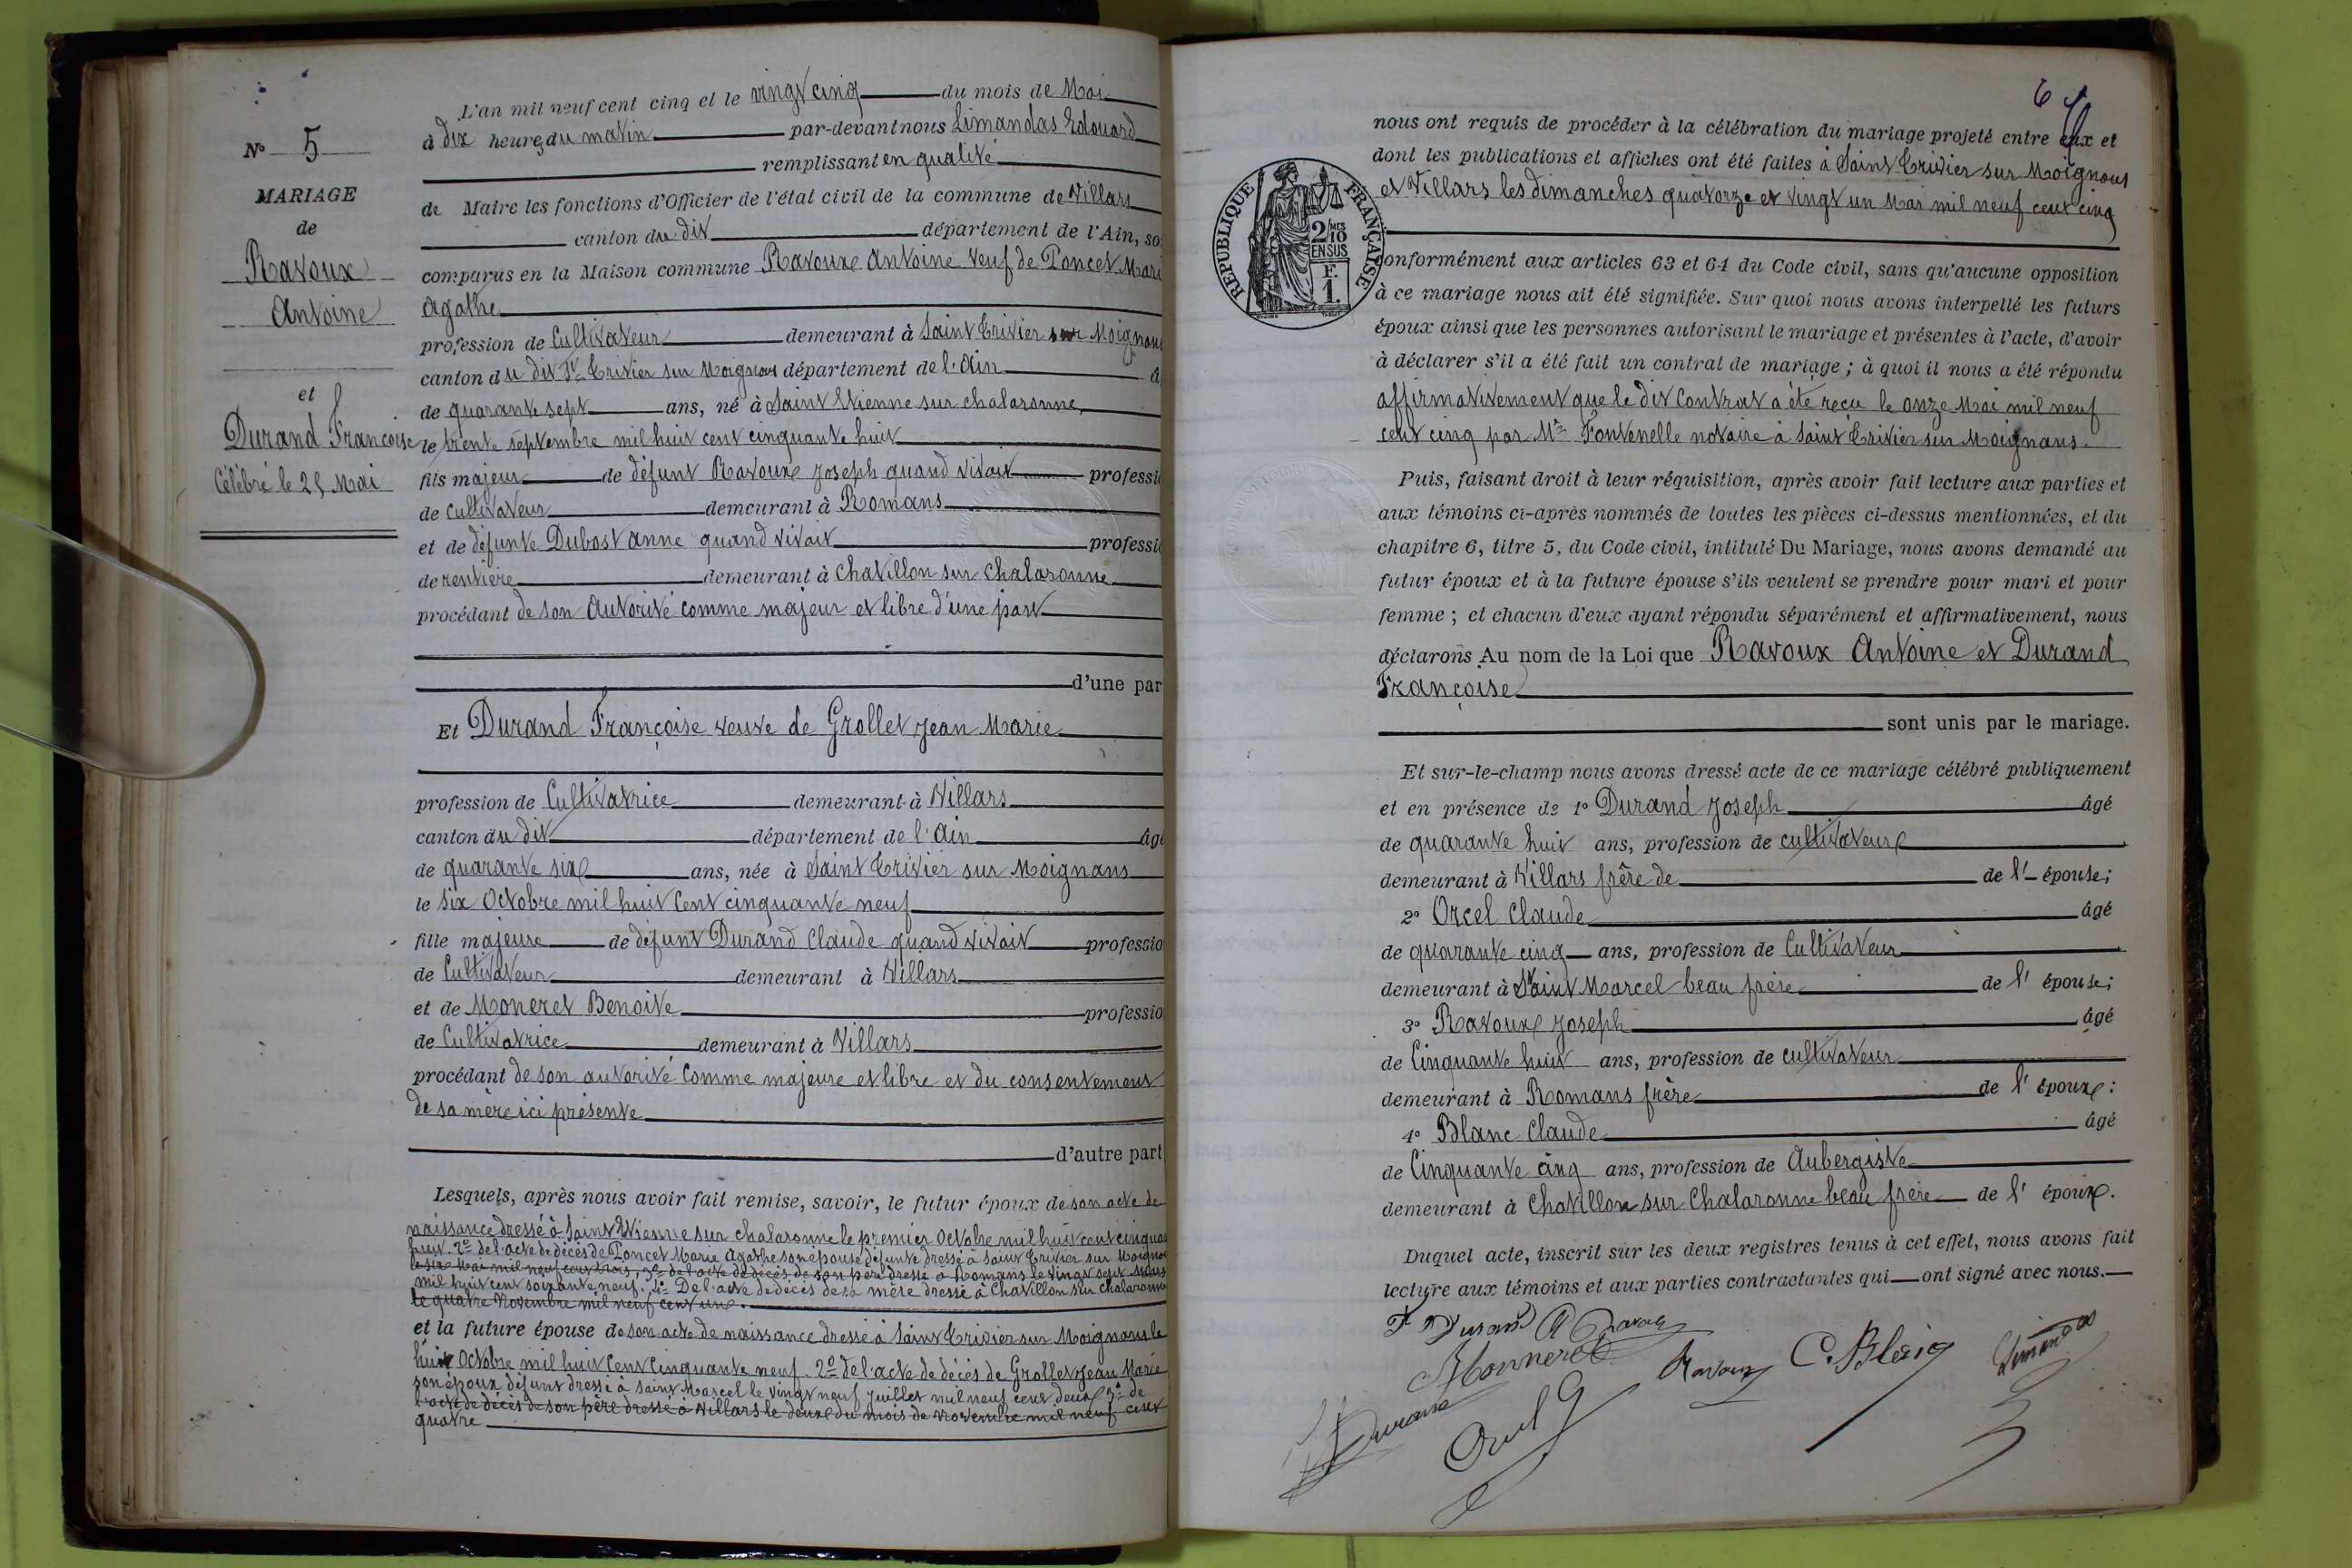 N° 5
MARIAGE
de
Ravoux
Antoine
et
Durand Françoise
Célébré le 25 Mai
L'an mil neuf cent cinq et le vingt cinq du mois de Mai
à dix heures du matin par-devant nous Limandas Edouard
remplissant en qualité
de Maire les fonctions d'Officier de l'état civil de la commune de Villars
canton du dit département de l'Ain, so
comparus en la Maison commune Ravoux Antoine veuf de Poncet Mari
Agathe
profession de Cultivateur demeurant à Saint Trivier sur Moignans
canton du dit St Trivier sur Moignans département de l'Ain â
de quarante sept ans, né à Saint Etienne sur chalaronne,
le trente septembre mil huit cent cinquante huit
fils majeur de défunt Ravoux Joseph quand vivait professi
de cultivateur demeurant à Romans
et de défunte Dubost Anne quand vivait professi
de rentière demeurant à Chatillon sur Chalaronne
procédant de son Autorité comme majeur et libre d'une part
d'une par
Et Durand Françoise veuve de Grollet Jean Marie
profession de Cultivatrice demeurant à Villars
canton du dit département de l'Ain âgé
de quarante six ans, née à Saint Trivier sur Moignans
le six Octobre mil huit Cent cinquante neuf
fille majeure de défunt Durand Claude quand vivait professio
de Cultivateur demeurant à Villars
et de Moneret Benoite professio
de Cultivatrice demeurant à Villars
procédant de son autorité Comme majeure et libre et du consentement
de sa mère ici présente
d'autre part
Lesquels, après nous avoir fait remise, savoir, le futur époux de son acte de
naissance dressé à Saint Etienne sur chalaronne le premier Octobre mil huit cent cinquan
huit. 2° de l'acte de décès de Poncet Marie Agathe son épouse défunte dressé à Saint Trivier sur Moignan
le six Mai mil neuf cent trois, 3° de l'acte de décès de son père dressé à Romans le vingt sept Mars
mil huit cent soixante neuf. 4° De l'acte de décès de sa mère dressé à Chatillon sur Chalaronne
le quatre Novembre mil neuf cent un.
et la future épouse de son acte de naissance dressé à Saint Trivier sur Moignans le
huit Octobre mil huit Cent Cinquante neuf. 2° de l'acte de décès de Grollet Jean Marie
son époux défunt dressé à Saint Marcel le vingt neuf Juillet mil neuf cent deux 3° de
l'acte de décès de son père dressé à Villars le deux du mois de Novembre mil neuf cent
quatre
6
nous ont requis de procéder à la célébration du mariage projeté entre eux et
dont les publications et affiches ont été faites à Saint Trivier sur Moignans
et Villars les dimanches quatorze et vingt un Mai mil neuf cent cinq
RÉPUBLIQUE FRANÇAISE
2/10 MES
EN SUS
F.
1.
conformément aux articles 63 et 64 du Code civil, sans qu'aucune opposition
à ce mariage nous ait été signifiée. Sur quoi nous avons interpellé les futurs
époux ainsi que les personnes autorisant le mariage et présentes à l'acte, d'avoir
à déclarer s'il a été fait un contrat de mariage ; à quoi il nous a été répondu
affirmativement que le dit Contrat a été reçu le onze Mai mil neuf
cent cinq par Me Fontenelle notaire à Saint Trivier sur Moignans.
Puis, faisant droit à leur réquisition, après avoir fait lecture aux parties et
aux témoins ci-après nommés de toutes les pièces ci-dessus mentionnées, et du
chapitre 6, titre 5, du Code civil, intitulé Du Mariage, nous avons demandé au
futur époux et à la future épouse s'ils veulent se prendre pour mari et pour
femme ; et chacun d'eux ayant répondu séparément et affirmativement, nous
déclarons Au nom de la Loi que Ravoux Antoine et Durand
Françoise
sont unis par le mariage.
Et sur-le-champ nous avons dressé acte de ce mariage célébré publiquement
et en présence de 1° Durand Joseph âgé
de quarante huit ans, profession de cultivateur
demeurant à Villars frère de de l' épouse;
2° Orcel Claude âgé
de quarante cinq ans, profession de Cultivateur
demeurant à Saint Marcel beau frère de l' épouse;
3° Ravoux Joseph âgé
de Cinquante huit ans, profession de cultivateur
demeurant à Romans frère de l' époux:
4° Blanc Claude âgé
de Cinquante cinq ans, profession de Aubergiste
demeurant à Chatillon sur Chalaronne beau frère de l' époux.
Duquel acte, inscrit sur les deux registres tenus à cet effet, nous avons fait
lecture aux témoins et aux parties contractantes qui ont signé avec nous.
F Durand A Ravoux
Monneret Ravoux C. Blanc Limandas
Durand
Orcel C